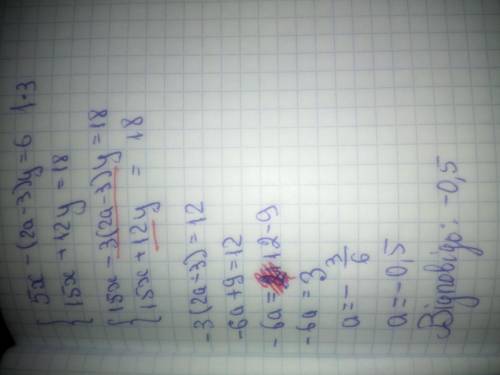 { 5x - (2a-3)y = 6 | ·3
15x + 12y = 18
{ 15x - 3(2a-3)y = 18
15x + 12y = 18
-3(2a-3) = 12
-6a + 9 = 12
-6a = 12 - 9
-6a = 3
a = - 3/6
a = -0,5
Відповідь: -0,5